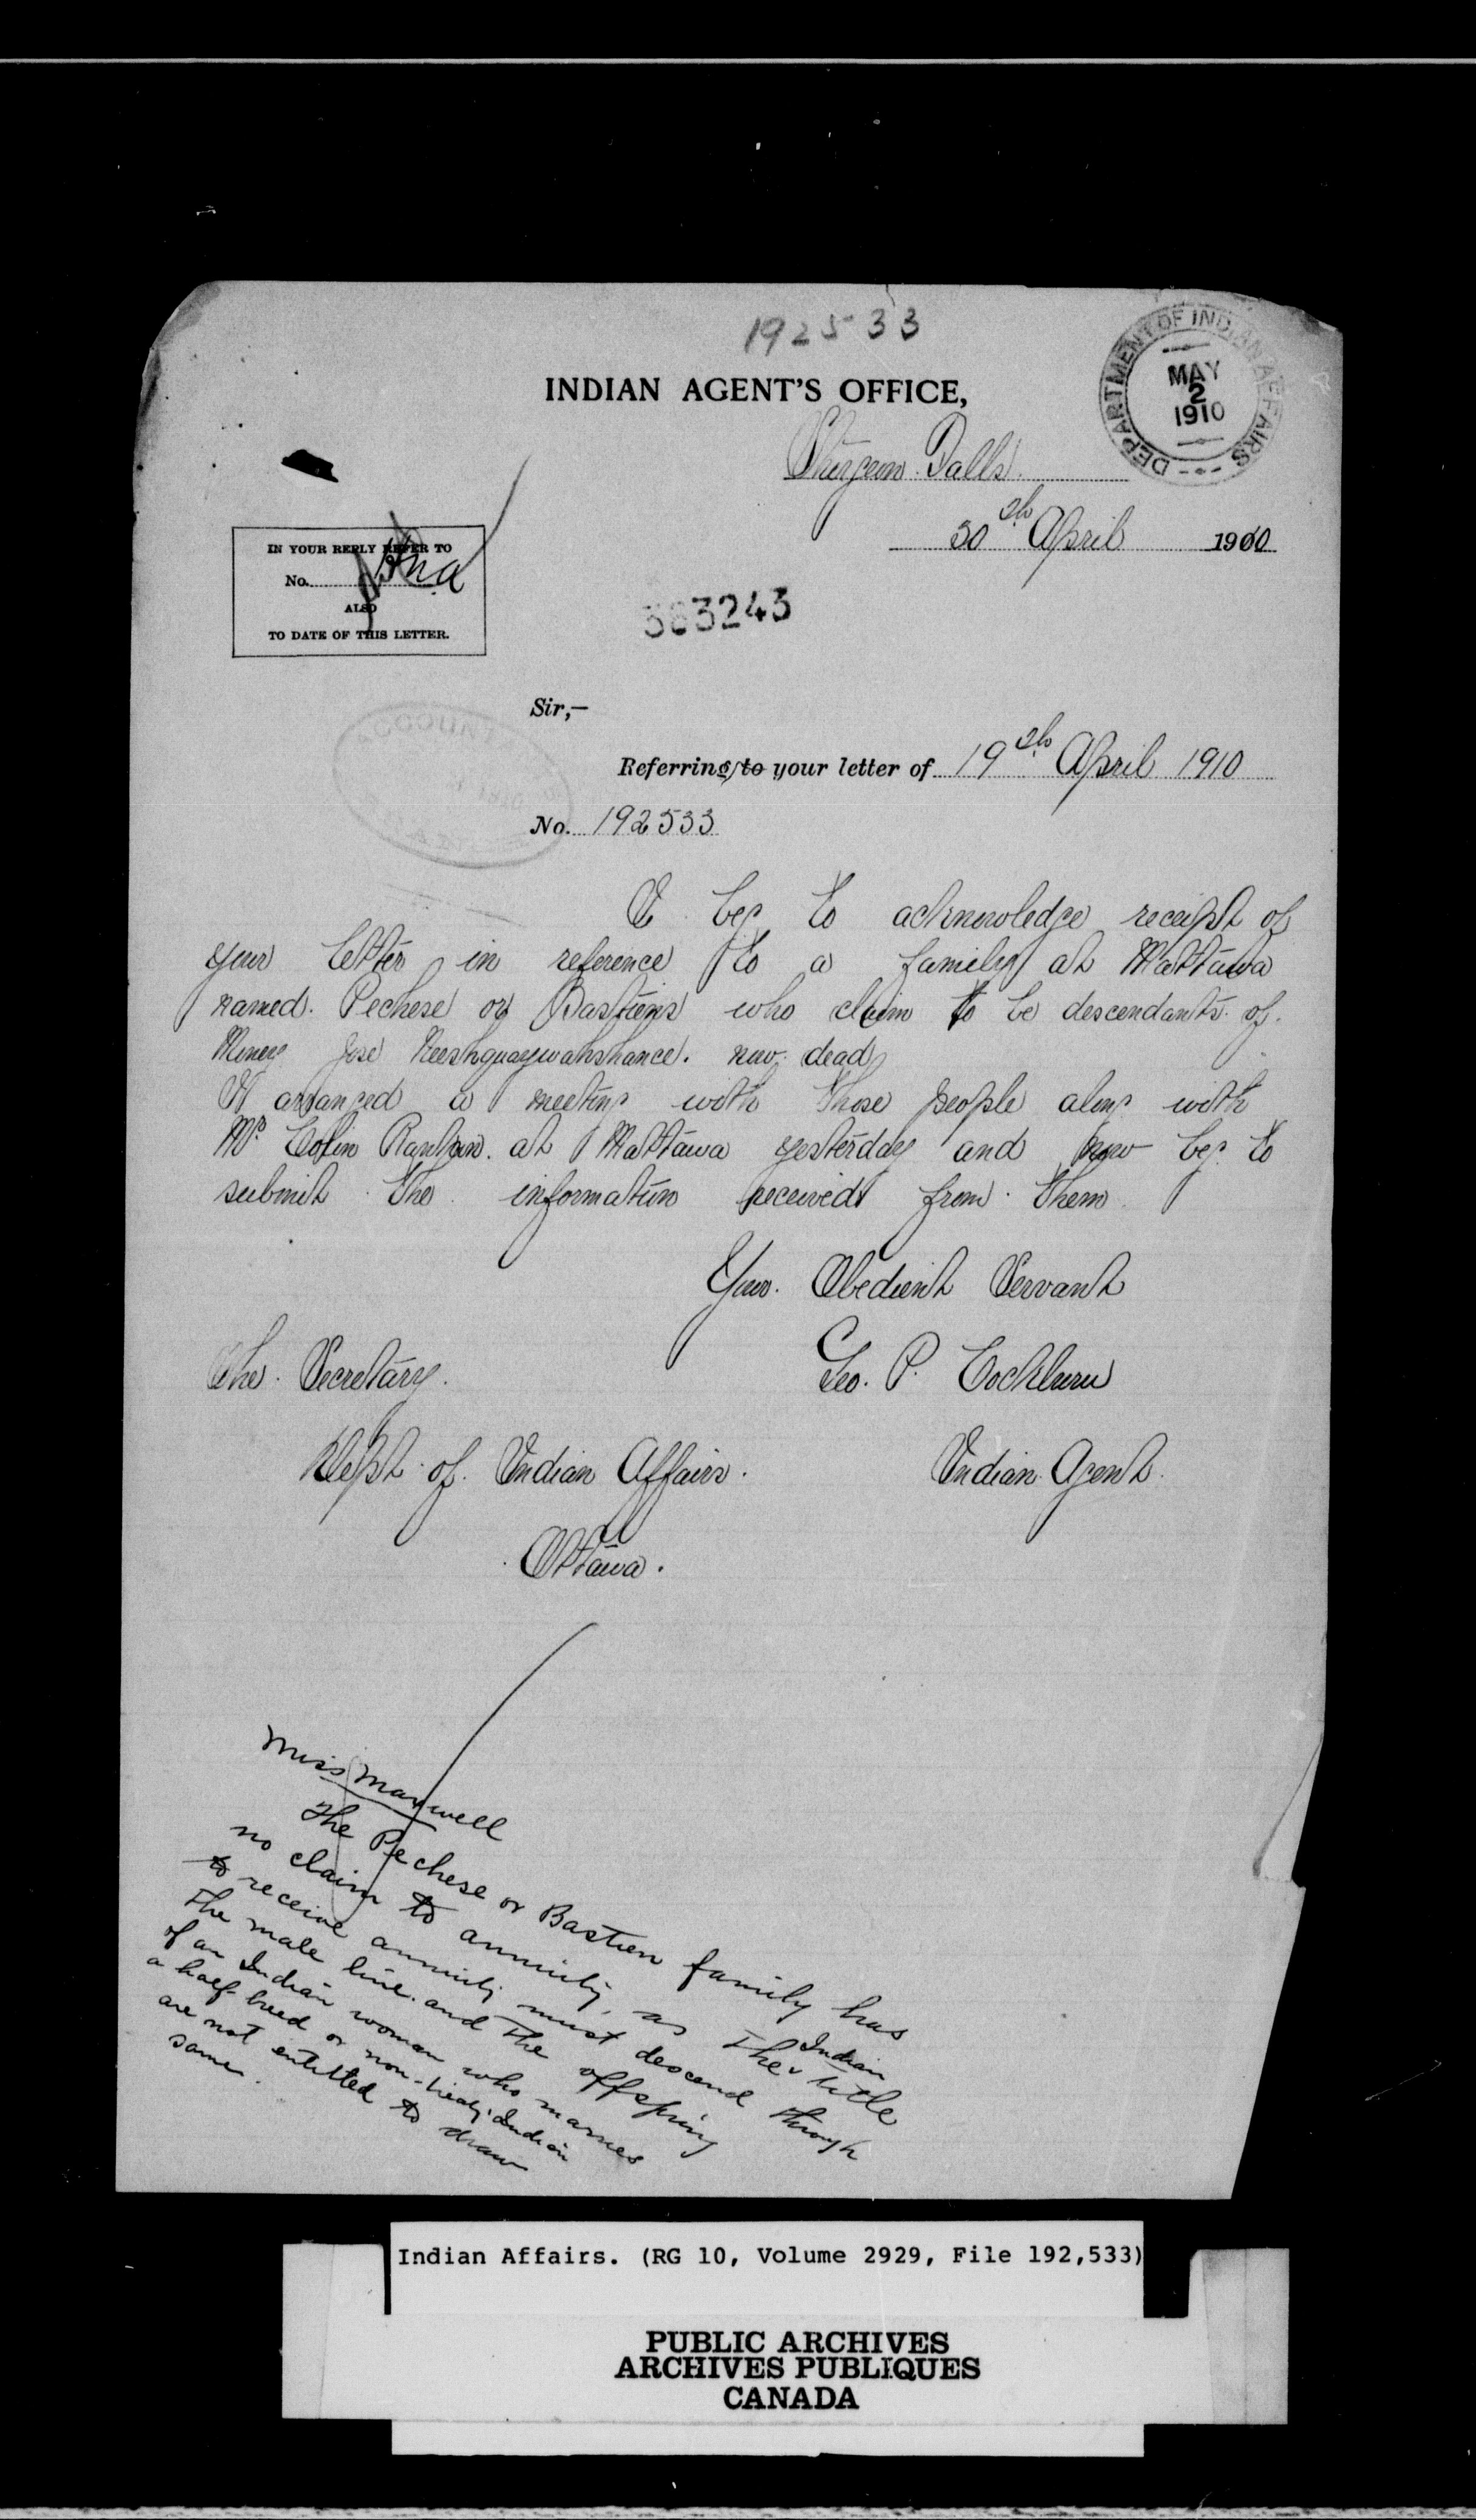 192533
INDIAN AGENT'S OFFICE,
DEPARTMENT OF INDIAN AFFAIRS
MAY
2
1910
Sturgeon Falls
30th April 1910
IN YOUR REPLY REFER TO
No.
ALSO
TO DATE OF THIS LETTER.
383243
Sir,—
Referring to your letter of 19th April 1910
No. 192533
I beg to acknowledge receipt of
your letter in reference to a family at Mattawa
named Pechese or Bastiens who claim to be descendants of
Jose now dead
I arranged a meeting with those people along with
Mr Colin Rankin at Mattawa yesterday and now beg to
submit the information received from them
Your Obedient Servant
The Secretary. Geo. P. Cockburn
Dept of Indian Affairs. Indian Agent.
Ottawa.
Miss Maxwell
The Pechese or Bastien family has
no claim to annuity, as the Indian title
to receive annuity must descend through
the male line and the offspring
of an Indian woman who marries
a half-breed or non-treaty Indian
are not entitled to draw
same.
Indian Affairs. (RG 10, Volume 2929, File 192,533)
PUBLIC ARCHIVES
ARCHIVES PUBLIQUES
CANADA